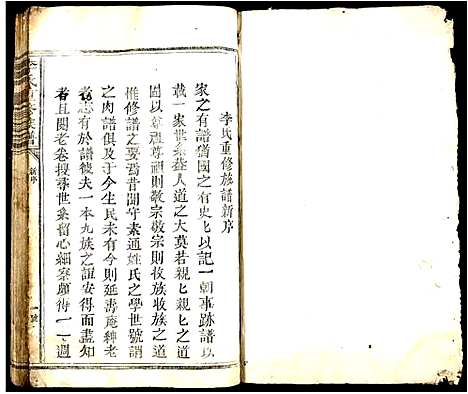 李氏重修族譜新序
家之有譜猶國之有史匕以記一朝事跡譜以
載一家世系葢人道之大莫若親匕親匕之道
固以尊祖尊祖則敬宗敬宗則收族收族之道
惟修譜之要焉昔開守素通姓氏之學世號謂
之肉譜俱及于今生民未有今則延壽庵紳老
者志有於譜後夫一本九族之誼安得而盡知
者且閱老卷搜尋世系留心細察頗待一二週
新序
一號